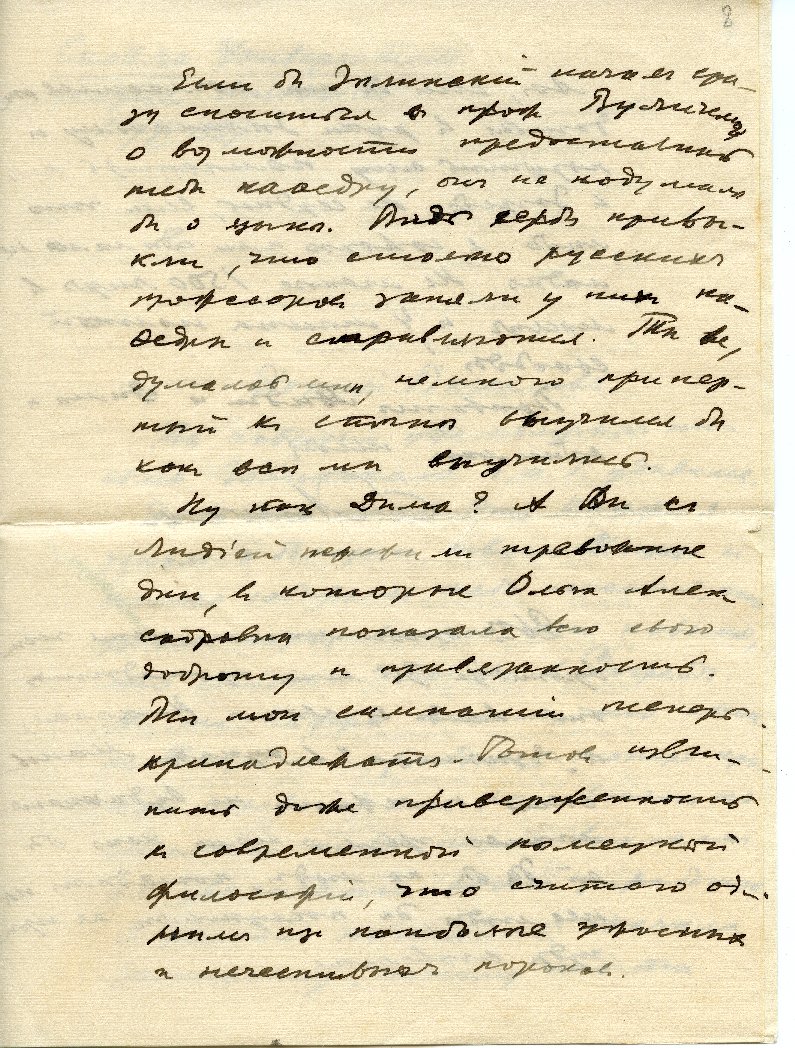 8
Если бы Зелинский начал сра-
зу сноситься с проф Вуличем
о возможности предоставить
тебе кафедру, они не подумали
бы о языке. Ведь сербы привы-
кли, что столько русских
профессоров заняли у них ка-
федры и справляются. Ты же,
думалось мне, немного припер-
тый к стене выучился бы
как все мы выучились.
Ну как Дима? А Вы с
Лидией пережили тревожные
дни, в которые Ольга Алек
сандровна показала всю свою
доброту и привязанность.
Все мои симпатии теперь
принадлежат. Готов изви-
нить даже приверженность
к современной немецкой
философии, что считаю од-
ним из наиболее
и нечестивых пороков.